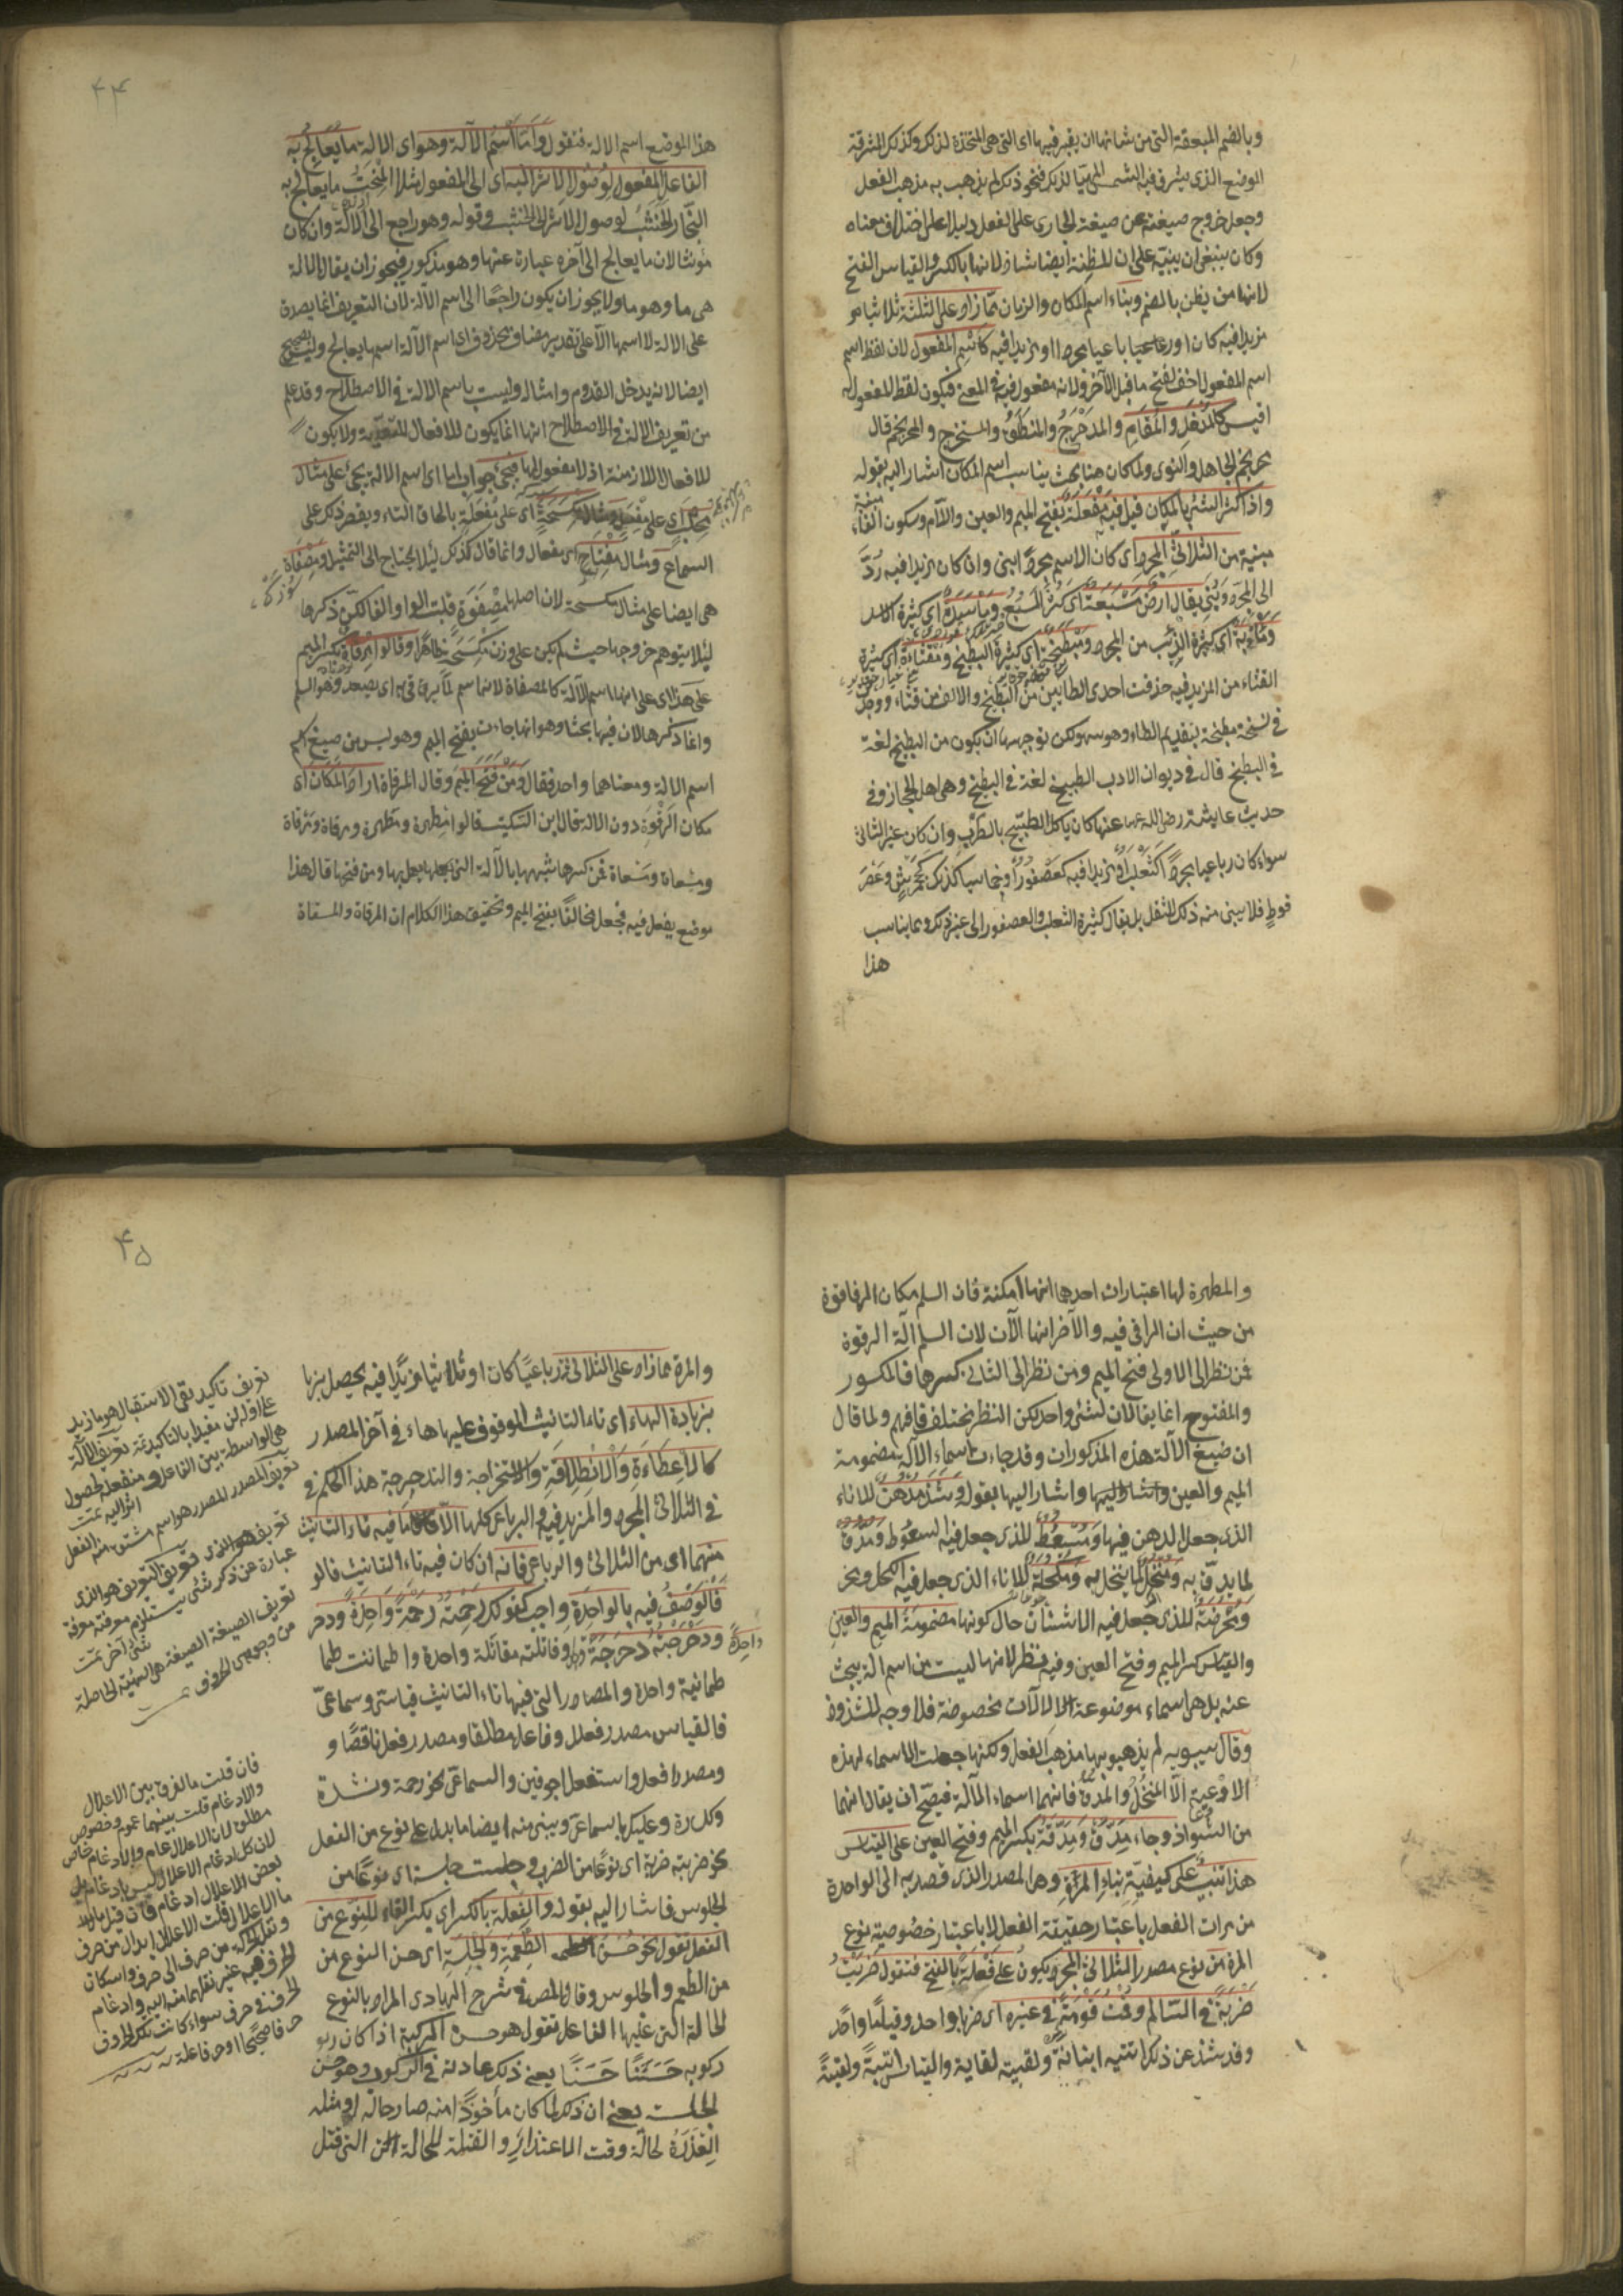 وبالضم المبعقة التى من شانها ان يقبر فيها اى التى هى المتخذة لذلك وكذلك المشرقة
الموضع الذى يشرق فيه الشمس المهيّا لذلك فنحو ذلك لم يذهب به مذهب الفعل
وجعل خروج صيغته عن صيغة الجارى على الفعل دليلا على اختلاف معناه
وكان ينبغى ان ينبّه على ان المظنة ايضا شاذ لانها بالكسر والقياس الفتح
لانها من يظن بالضم وبناء اسم المكان والزمان ممّا زاد على الثلثة ثلاثيا مو
مزيدا فيه كان او رباعيا باعيا مجردا او مزيدا فيه كاسم المفعول لان لفظ اسم
اسم المفعول اخف لفتح ما قبل الآخر ولانه مفعول فيه فى المعنى فيكون لفظ المفعول له
اقيس كالمُدْخَلِ والمُقَامِ والمدَحْرَجُ والمنطَلَقُ والمستخرج والمحرنجم قال
محرنجم الجاهل والنوى ولما كان هنا بحث يناسب اسم المكان اشار اليه بقوله
واذا كثر الشئ بالمكان قيل فيه مَفْعَلَةٌ بفتح الميم والعين واللام وسكون الفاء
مبنية من الثلاثىّ المجرد اى كان الاسم مجردً ابنى وان كان مزيدا فيه رُدَّ
الى المجرد وبُنى يقال ارضٌ مَسْبَعَةٌ اى كثر السَبُعُ ومَأْسَدَةٌ اى كثيرة الاسد
ومَذْأَبَةٌ اى كثيرة الذئب من المجرد ومَبْطَخَةٌ اى كثيرة البطيخ ومَقْثَأَةٌ اى كثيرة
القثاء من المزيد فيه حذفت احدى الطائين من البطيخ والالف من قثاء ووجد
فى نسخة مطبخة بتقديم الطاء وهو سهو لكن توجيهها ان يكون من الطبيخ لغة
فى البطيخ قال فى ديوان الادب الطبيخ لغة فى البطيخ وهى اهل الحجاز وفى
حديث عايشة رضى الله عنها كان ياكل الطبيخ بالرطب وان كان غير الثلاثى
سواء كان رباعيا مجردً اكثعلب او مزيدا فيه كعصفور او خماسيا كذلك كجحمرش وعضر
فوط فلا يبنى منه ذلك للثقل بل يقال كثيرة الثعلب والعصفور الى غير ذلك ومما يناسب
هذا
۴۴
هذا الموضع اسم الالة فنقول وَامَّا اسْمُ الآلة وهو اى الالة ما يُعَالِجُ به
الفاعلُ المفعولَ لوصُولِ الاثرِ اليه اى الى المفعول مثلا المِنْحَتُ ما يعالج به
النّجار الخشبَ لوصول الاثر الى الخشب وقوله وهو راجع الى الآلة وان كان
مؤنثا لان ما يعالج الى آخره عبارة عنها وهو مذكور فيجوز ان يقال الالة
هى ما وهو ما ولا يجوز ان يكون راجعًا الى اسم الآلة لان التعريف انما يصدق
على الالة لا اسمها الّا على تقدير مضاف محذوف اى اسم الآلة اسم ما يعالج وليس بصحيح
ايضا لانه يدخل القدوم وامثاله وليست باسم الالة فى الاصطلاح وقد علم
من تعريف الالة فى الاصطلاح انها انما يكون للافعال المتعدّية ولا يكون
للافعال اللازمة اذ لا مفعول لها فيجئ جواب اما اى اسم الالة يجئ على مثال
مِحْلَبٍ اى على مِفْعَلٍ ومثال مِكْسَحَةٍ اى على مِفْعَلَةٍ بالحاق التاء ويقصر ذلك على
السماع ومثال مِفْتَاحٍ اى مفعال وانما قال كذلك لئلا يحتاج الى التمثيل ومِصْفَاةٌ
هى ايضا على مثال مكسحة لان اصلها مِصْفَوَة قلبت الواو الفا لكن ذكرها
لئلا يتوهم خروجها حيث لم يكن على وزن مِكْسَحَةٍ ظاهرًا وقالوا مِرْقاةٌ بكسر الميم
على هذا اى على انها اسم الآلة كالمصفاة لانها اسم لما يرقى به اى يصعد وهو السلم
وانما ذكرها لان فيها بحثا وهو انها جاءت بفتح الميم وهو ليس من صيغ اسم
اسم الالة ومعناهما واحد فقال ومَنْ فَتَحَ الميم وقال المرقاة اراد المكان اى
مكان الرَقْوَةِ دون الالة قال ابن السكيت قالوا مِطهرة ومَطهرة ومِرقاة ومَرقاة
ومِسعاة ومَسعاة فمن كسرها شبهها بالآلة التى يعمل بها ومن فتحها قال هذا
موضع يفعل فيه فجعل مخالفًا بفتح الميم وتحقيق هذا الكلام ان المرقاة والمسقاة
والمطهرة لها اعتباران احدها انها امكنة فان السلم مكان الرقوة
من حيث ان الراقى فيه والآخر انها الآت لان السلم آلة الرقوة
فمن نظر الى الاولى فتح الميم ومن نظر الى الثانى كسرها فالمكسور
والمفتوح انما يقالان لشئ واحد لكن النظر مختلف فافهم ولما قال
ان صيغ الآلة هذه المذكورات وقد جاءت اسماء الآلة مضمومة
الميم والعين واشار اليها بقوله وشَذَّ مُدْهُنٌ للاناء
الذى جعل الدهن فيها ومُسْعُطٌ للذى جعل فيه السعوط ومُدُقٌّ
لما يدقّ به ومُنْخُلٌ لما ينخل به ومُكْحُلَةٌ للاناء الذى جعل فيه الكحل ونحو
ومُحْرُضَةٌ للذى جعل فيه الاشنان حال كونها مضمومة الميم والعين
والقياس كسر الميم وفتح العين وفيه نظر لانها ليست من اسم الة يبحث
عنه بل هى اسماء موضوعة لآلات مخصوصة فلا وجه للشذوذ
وقال سيبويه لم يذهبوا بها مذهب الفعل ولكنها جعلت اسماء لهذه
الاوعية الّا المنخُل والمدقّ فانهما اسماء الآلة فيصحّ ان يقال انهما
من الشواذ وجاء مِدَقٌّ ومِدَقَّةٌ بكسر الميم وفتح العين على القياس
هذا تنبيه على كيفيّة بناءِ المرَّةِ وهى المصدر الذى قصد به الى الواحدة
من مرات الفعل باعتبار حقيقة الفعل لا باعتبار خصوصية نوع
المرة من نوع مصدر الثلاثى المجرد يكون على فَعْلَةٍ بالفتح فتقول ضربْتُ
ضَرْبَةً فى السالم وقُمْتُ قَوْمَةً فى غيره اى ضربا واحد وقيامًا واحدً
وقد شذ عن ذلك اتيته اتيانةً ولقيته لقاية والقياس اتيةً ولقيةً
۴۵
والمرة ممّا زاد على الثلاثى رباعيًا كان او ثلاثيا مزيدا فيه يحصل بزيا
بزيادة الهاء اى تاء التانيث الموقوف عليها هاء فى آخر المصدر
كالاعطاءَةِ وَالانْطِلاقَةِ والاستخراجة والتدحرجة هذا الحكم فى
فى الثلاثى المجرد والمزيد فيه والرباعى كلها الّا ما فيه تاء التانيث
منهما اى من الثلاثى والرباعى فانه ان كان فيه تاء التانيث فالو
فَالْوَصْفُ فيه بالواحدةِ واجب كقولك رحِمتُهُ رَحْمَةً وَاحِدَةً ودحر
ودَحْرَجْتُهُ دَحْرَجَةً واحِدَةً وقاتلته مقاتلة واحدة واطماننت طما
طمانينة واحدة والمصادر التى فيها تاء التانيث قياسىّ وسماعىّ
فالقياس مصدر فعلل وفاعل مطلقا ومصدر فعل ناقصًا و
ومصدر افعل واستفعل اجوفين والسماعى نحو رحمة ونشدة
وكدرة وعليك بالسماعى ويبنى منه ايضا ما يدل على نوع من الفعل
نحو ضربته ضربة اى نوعًا من الضرب وجلست جلسة اى نوعًا من
الجلوس فاشار اليه بقوله والفِعْلَة بالكسر اى بكسر الفاء للنوع من
الفعل تقول نحو حسنُ الطِّعْمَةِ والجِلْسَةِ اى حسن النوع من
من الطعم والجلوس وقال المصـ فى شرح الهادى المراد بالنوع
الحالة التى عليها الفاعل تقول هو حسن الركبة اذا كان ركو
ركوبه حَسَنًا حَسَنًا يعنى ذلك عادته فى الركوب وهو حسن
الجلسة يعنى ان ذلك لما كان مأخوذًا منه صار حالة له ومثله
العِذْرَةُ لحالة وقت الاعتذار والقتلة للحالة التى قتل
تعريف تاكيد نفى الاستقبال هو ما زيد
على اوله لن مفيدا بالتاكيد تمت تعريف الآلة
هى الواسطة بين الفاعل ومنفعله لحصول
اثر اليه تمت
تعريف المصدر المصدر هو اسم مشتق منه الفعل
عبارة عن ذكر شئ يستلزم معرفته معرفة
شئ آخر تمت
تعريف الصيغة الصيغة هى الهيئة الحاصلة
فان قلت ما الفرق بين الاعلال
والادغام قلت بينهما عموم وخصوص
مطلق لان الاعلال عام والادغام خاص
لان كل ادغام الاعلال ليس بادغام بل
بعض الاعلال ادغام فان قيل ما
ما الاعلال قلت الاعلال ابدال من حرف
الحرف فى حرف سواء كانت تلك الحروف
حرفا صحيحًا او حرفا علة